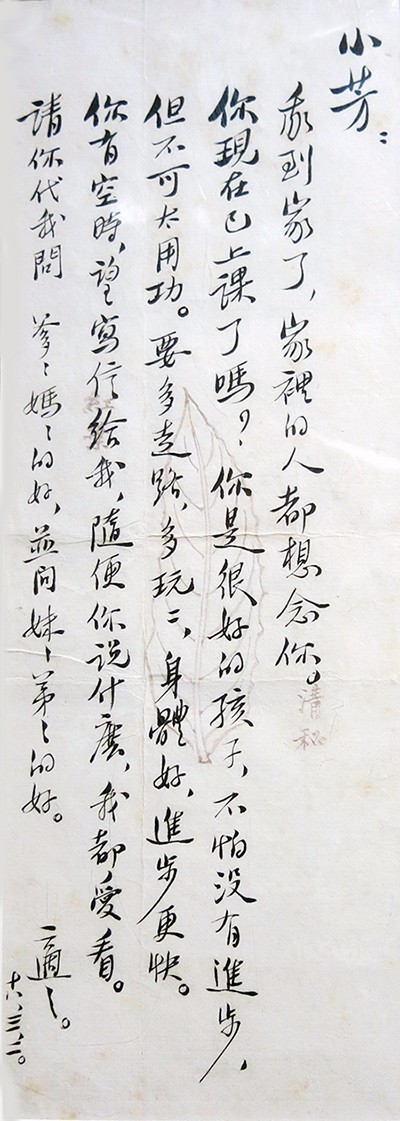 小芳：
我到家了，家裡的人都想念你。
你現在已上課了嗎？你是很好的孩子，不怕没有進步，
但不可太用功。要多走路，多玩玩，身體好，進步更快。
你有空時，望寫信給我，隨便你说什麽，我都愛看。
請你代我問 爹々媽々的好，並问妹々弟々的好。
適之。
十八，三，二。
清秘